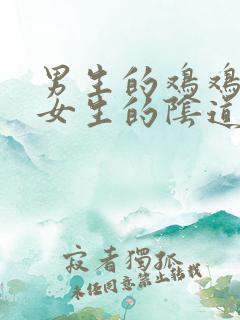 男生的鸡鸡
女生的陰道
寂者獨孤
未经同意禁止转载